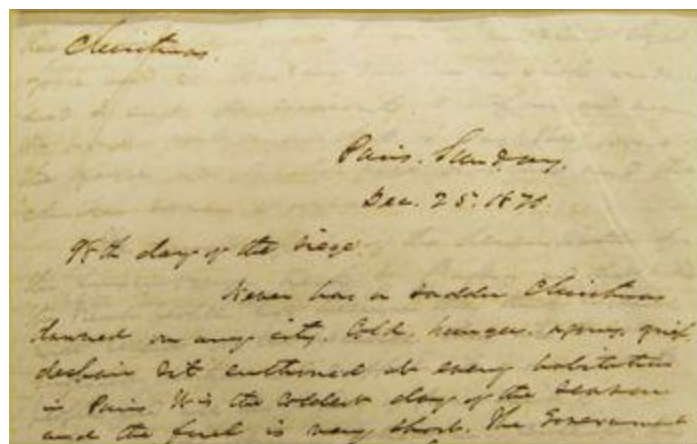 Christmas.
Paris. Sunday.
Dec. 25. 1870.
98th day of the siege.
Never has a sadder Christmas
dawned on any city. Cold, hunger, agony, grief,
despair sit enthroned at every habitation
in Paris. It is the coldest day of the season
and the fuel is very short. The Government